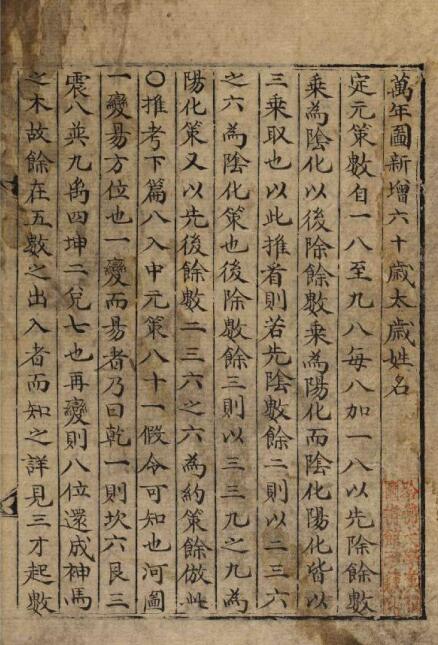 萬年圖新增六十歲太歲姓名
定元策數自一八至九八每八加一八以先除餘數
乘為陰化以後除餘數乘為陽化而陰化陽化皆以
三乘取也以此推看則若先陰數餘二則以二三六
之六為陰化策也後除數餘三則以三三九之九為
陽化策又以先後餘數二三六之六為約策餘倣此
〇推考下篇八入中元策八十一假令可知也河圖
一變易方位也一變而易者乃曰乾一則坎六艮三
震八巽九离四坤二兌七也再變則八位還成神馬
之木故餘在五數之出入者而知之詳見三才起數